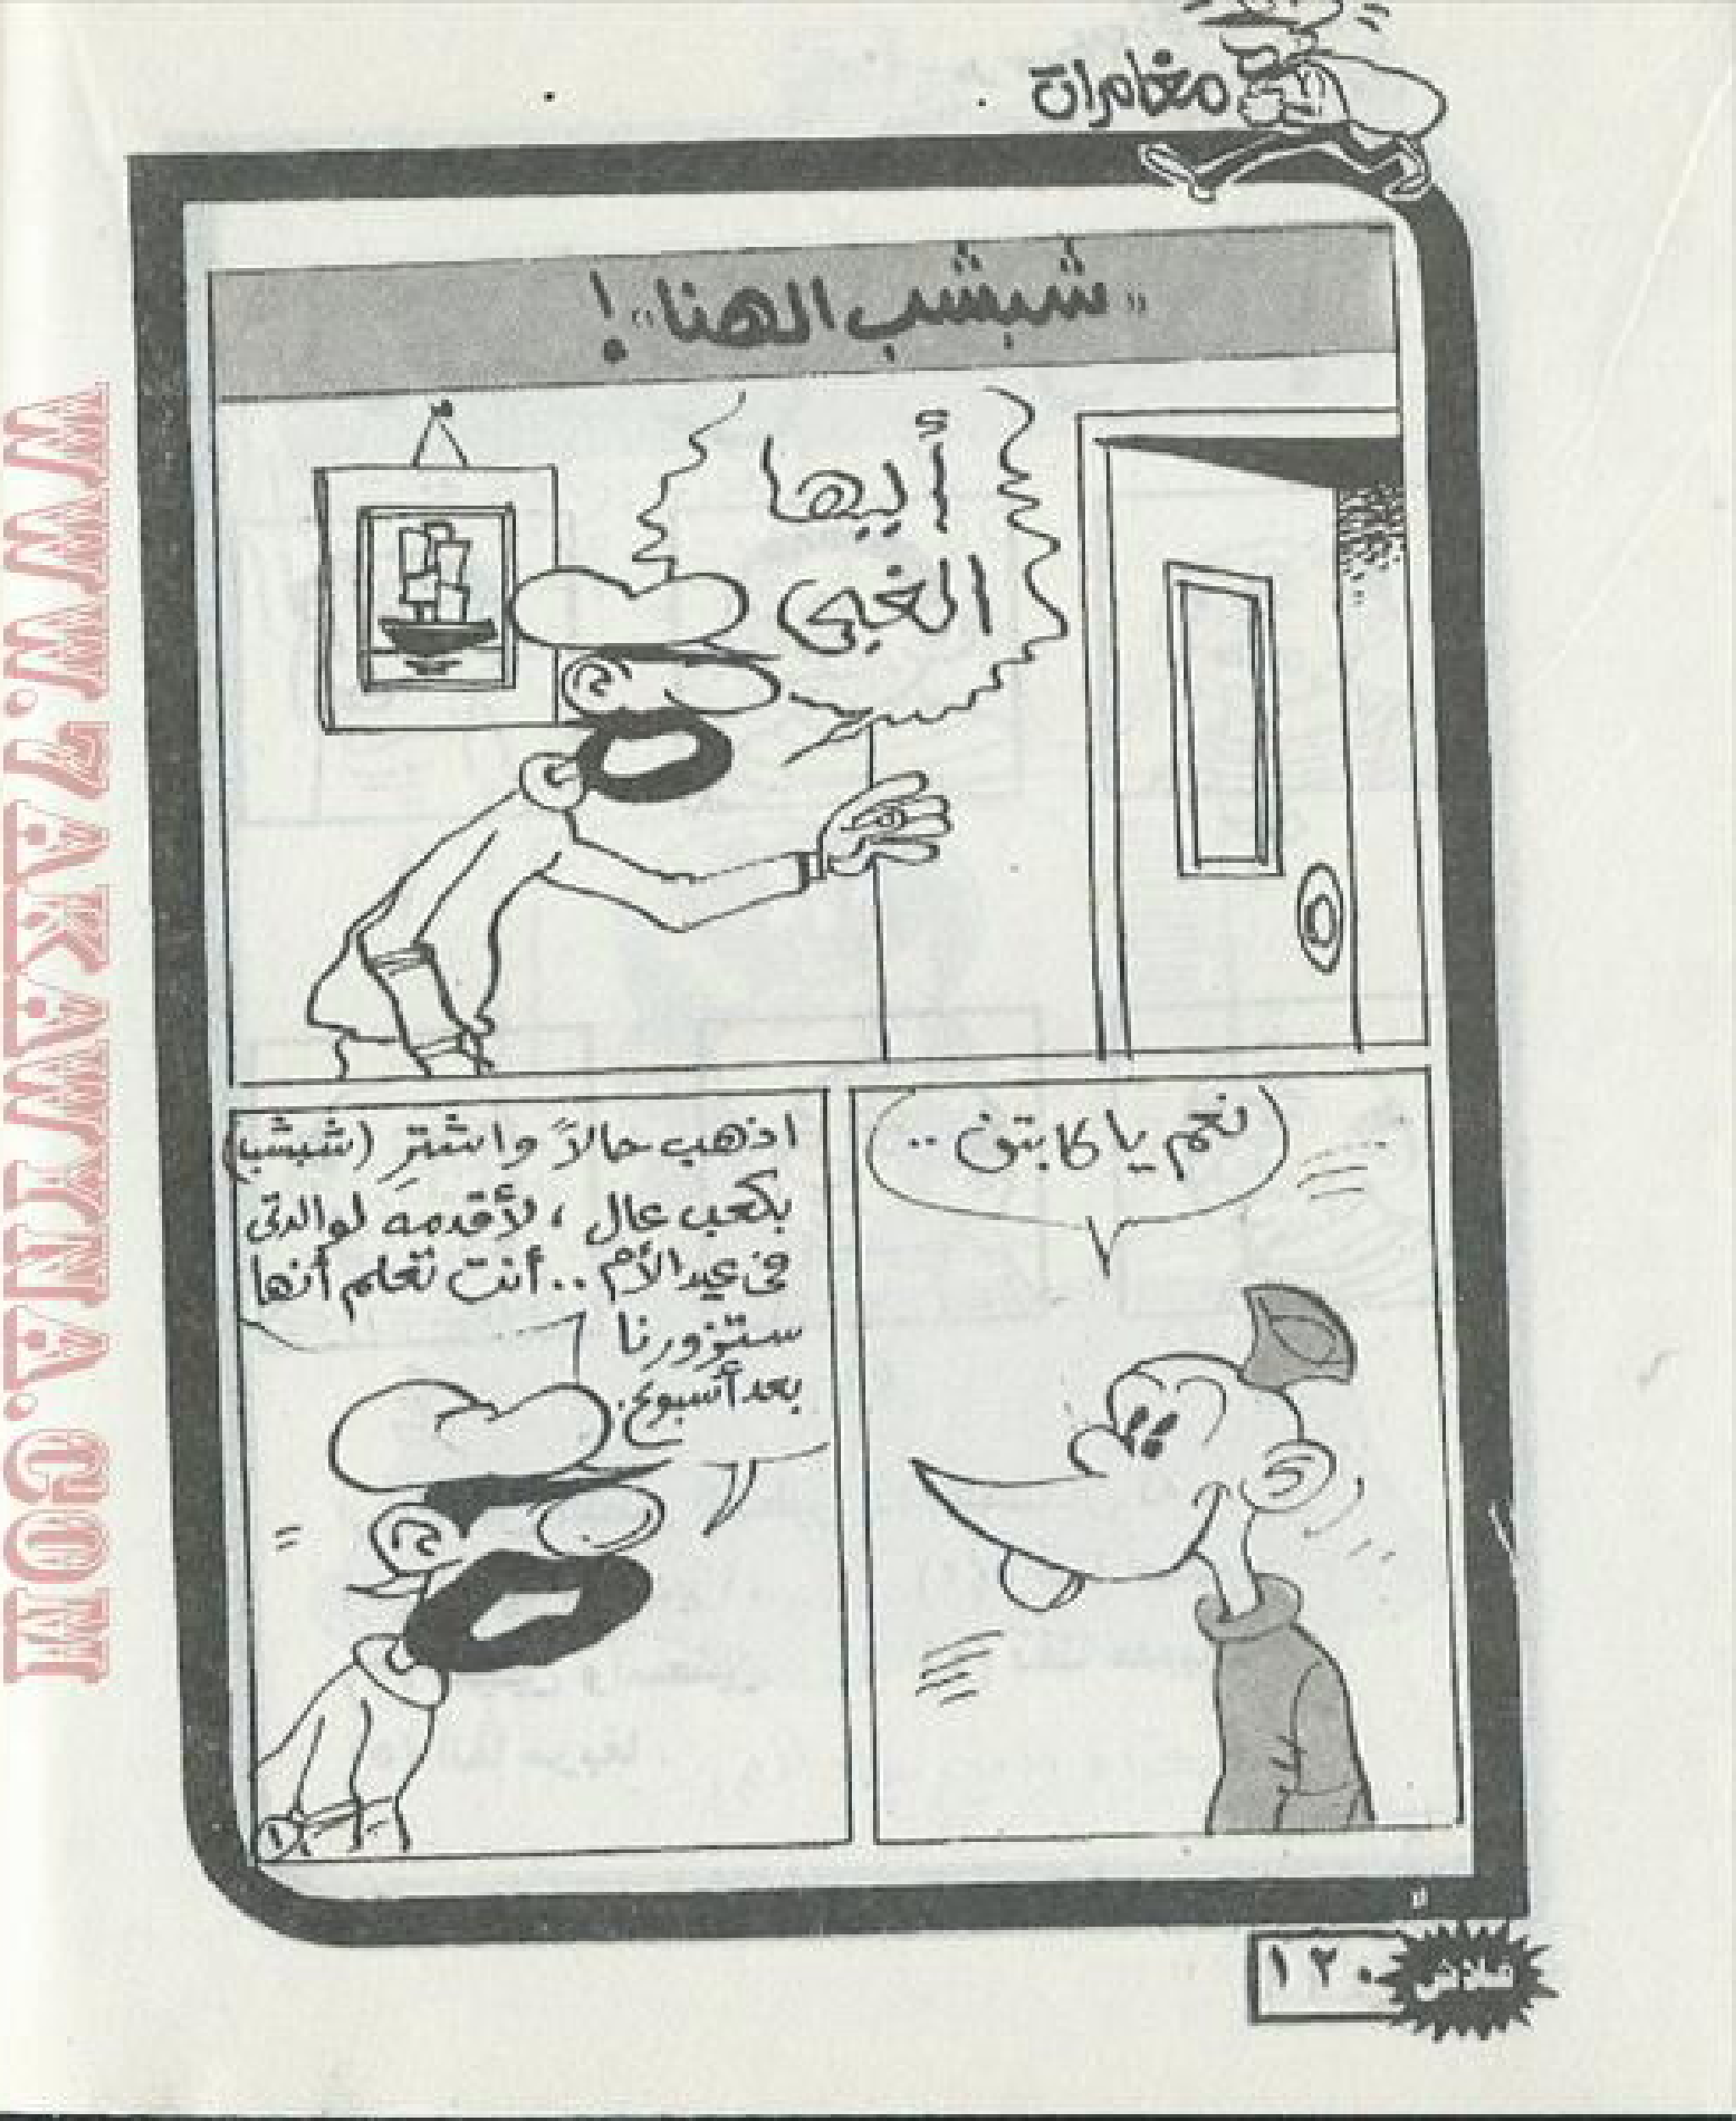 مغامرات
"شبشب الهنا"!
أيها
الغبى
نعم يا كابتن ..
اذهب حالاً واشترِ (شبشبا)
بكعب عال ، لأقدمه لوالدتى
فى عيد الأم .. أنت تعلم أنها
ستزورنا
بعد أسبوع.
١
فلاش
١٢٠
WWW.7AKAWYNA.COM